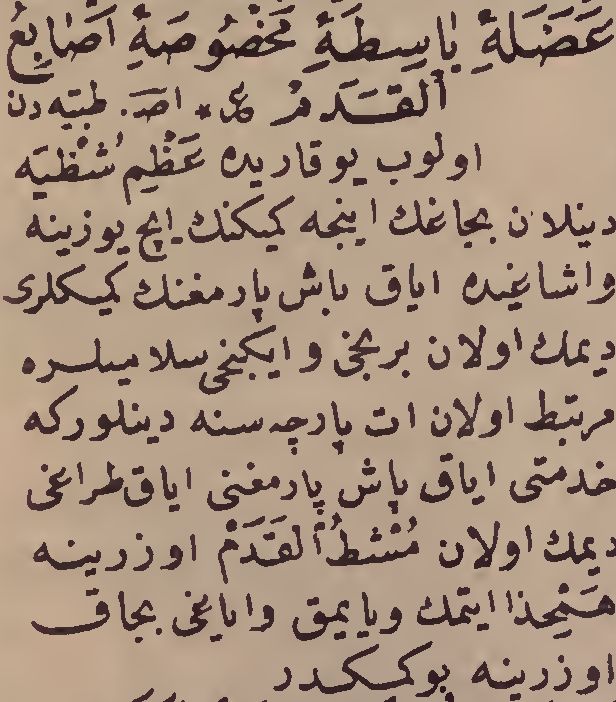 عَضَلَةِ بَاسِطَةِ مَخْصُوصَةِ اَصَابِعُ
اَلقَدَمْ عى * اصـ. طبیه دن
اولوب یوقاریده عَظْمِ شَظْیَه
دینلان بجاغك اینجه كمیكنك ایچ یوزینه
واشاغیده ایاق باش پارمغنك كمیكلری
دیمك اولان برنجی و ایكنجی سلامیلره
مرتبط اولان ات پارچه سنه دینلوركه
خدمتی ایاق باش پارمغنی ایاق طراغی
دیمك اولان مُشْطُ اَلقَدَمْ اوزرینه
ایتمك ویایمق وایاغی بجاق
اوزرینه بوكمكدر